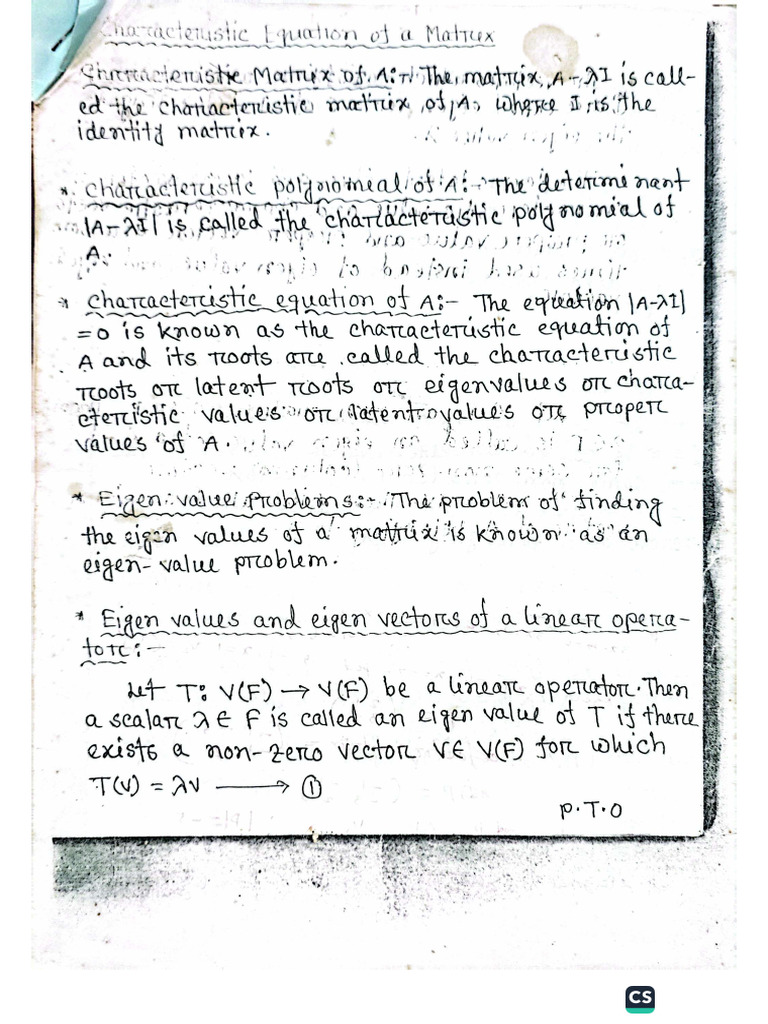 Characteristic Equation of a Matrix
Characteristic Matrix of A:- The matrix A-λI is call-
ed the characteristic matrix of A, where I is the
identity matrix.
* Characteristic polynomial of A:- The determinant
|A-λI| is called the characteristic polynomial of
A.
* Characteristic equation of A:- The equation |A-λI|
=0 is known as the characteristic equation of
A and its roots are called the characteristic
roots or latent roots or eigenvalues or chara-
cteristic values or latent values or proper
values of A.
* Eigen value Problems:- The problem of finding
the eigen values of a matrix is known as an
eigen-value problem.
* Eigen values and eigen vectors of a linear opera-
tor:-
Let T: V(F) → V(F) be a linear operator. Then
a scalar λ ∈ F is called an eigen value of T if there
exists a non-zero vector v ∈ V(F) for which
T(v) = λv ⟶ ①
P.T.O
CS